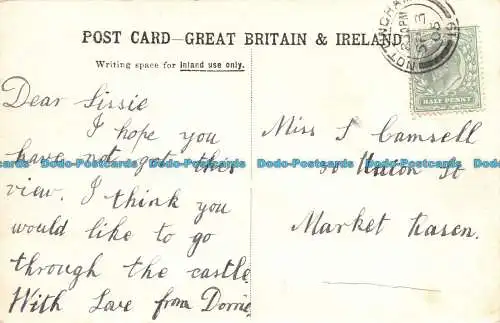 POST CARD—GREAT BRITAIN & IRELAND
Writing space for inland use only.
NOTTINGHAM
HALF PENNY
Dear Sissie
I hope you
have not got this
view. I think you
would like to go
through the castle
With Love from Dorrie
Miss S Camsell
Union St
Market Rasen.
Dodo-Postcards Dodo-Postcards Dodo-Postcards Dodo-Postcards